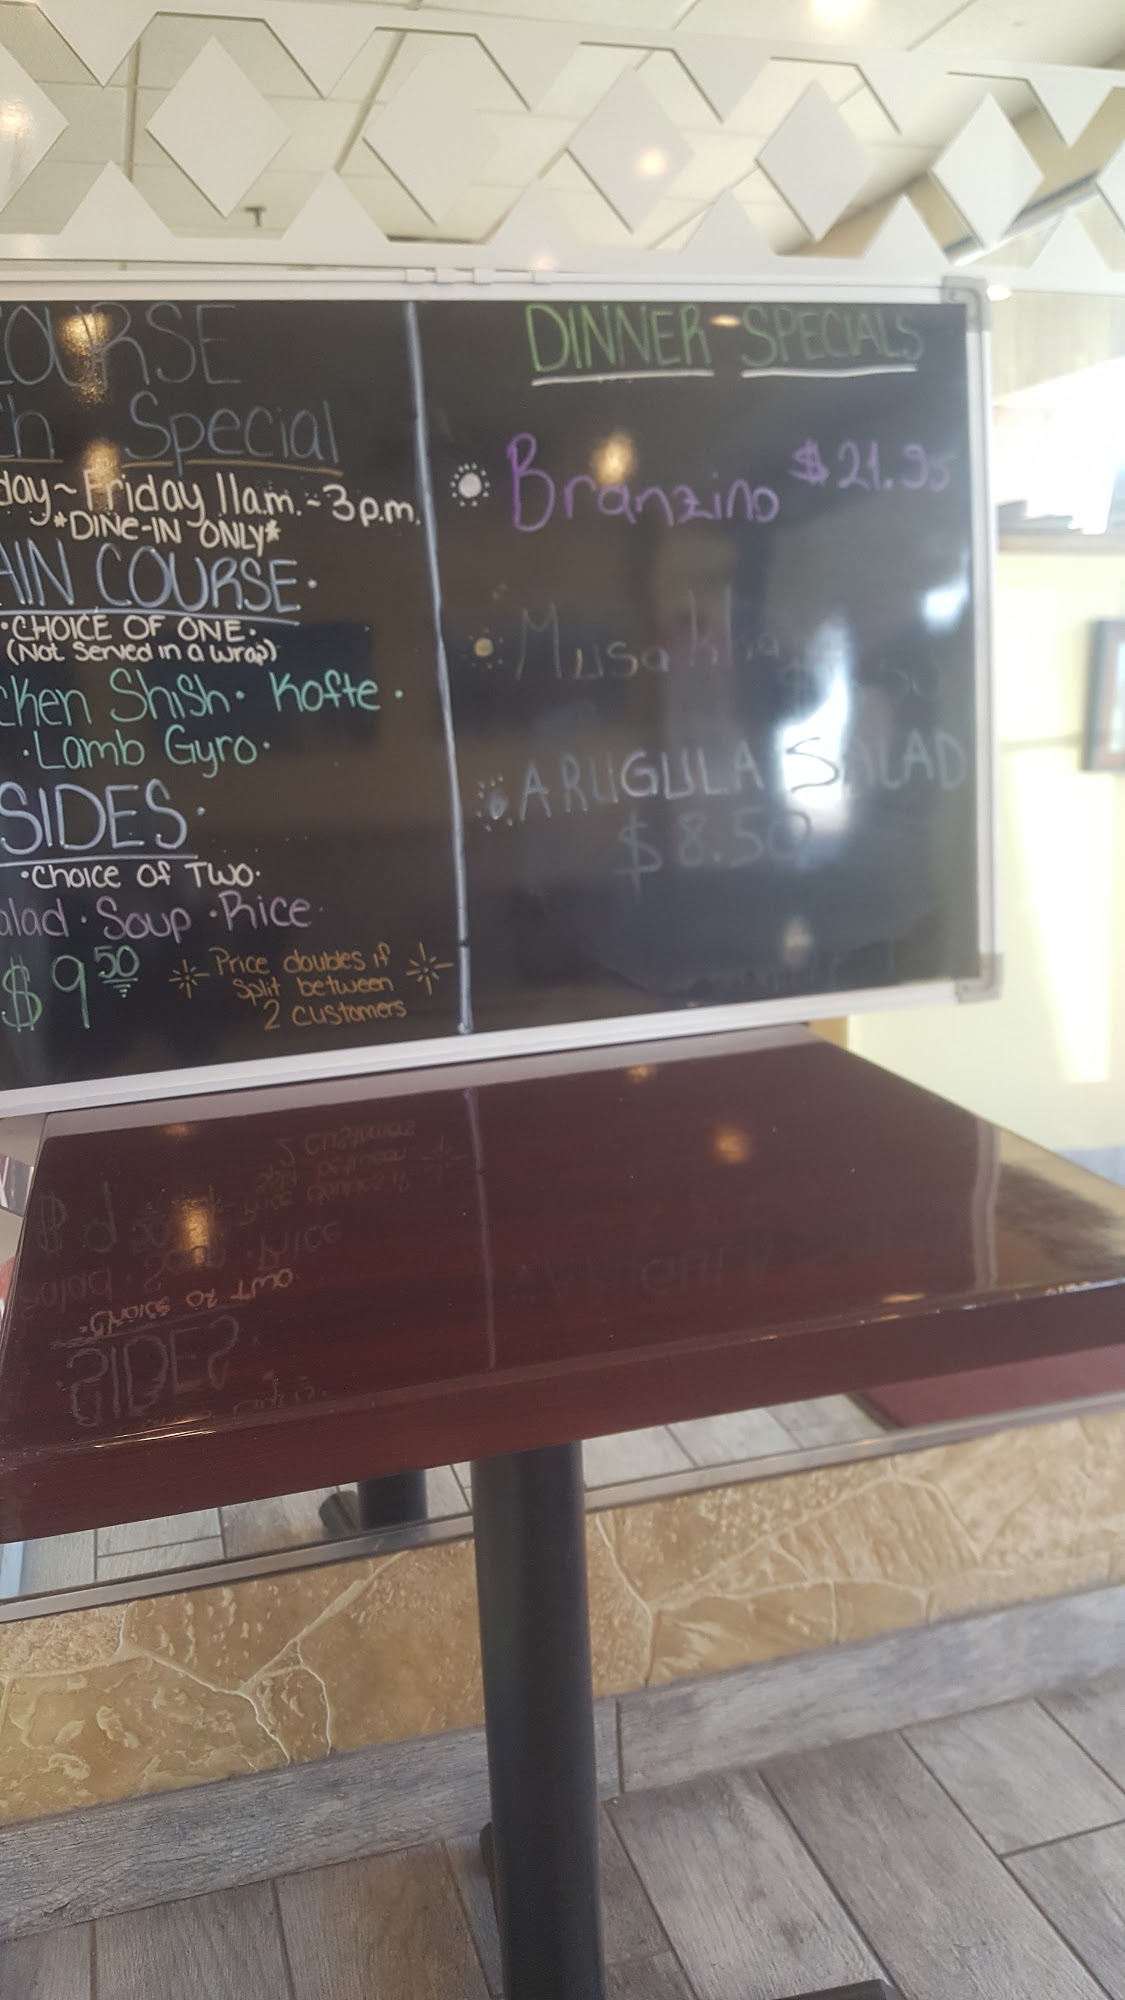 COURSE
Special
~ Friday 11am. ~ 3p.m.
*DINE-IN ONLY*
COURSE.
•CHOICE OF ONE.
(Not Served in a wrap)
Shish • Kofte •
•Lamb Gyro•
SIDES•
•Choice OF TWO•
• Soup • Rice•
$9.50
Price doubles if
Split between
2 customers
DINNER SPECIALS
Branzino $21.95
Musakha
ARUGULA SALAD
$8.50